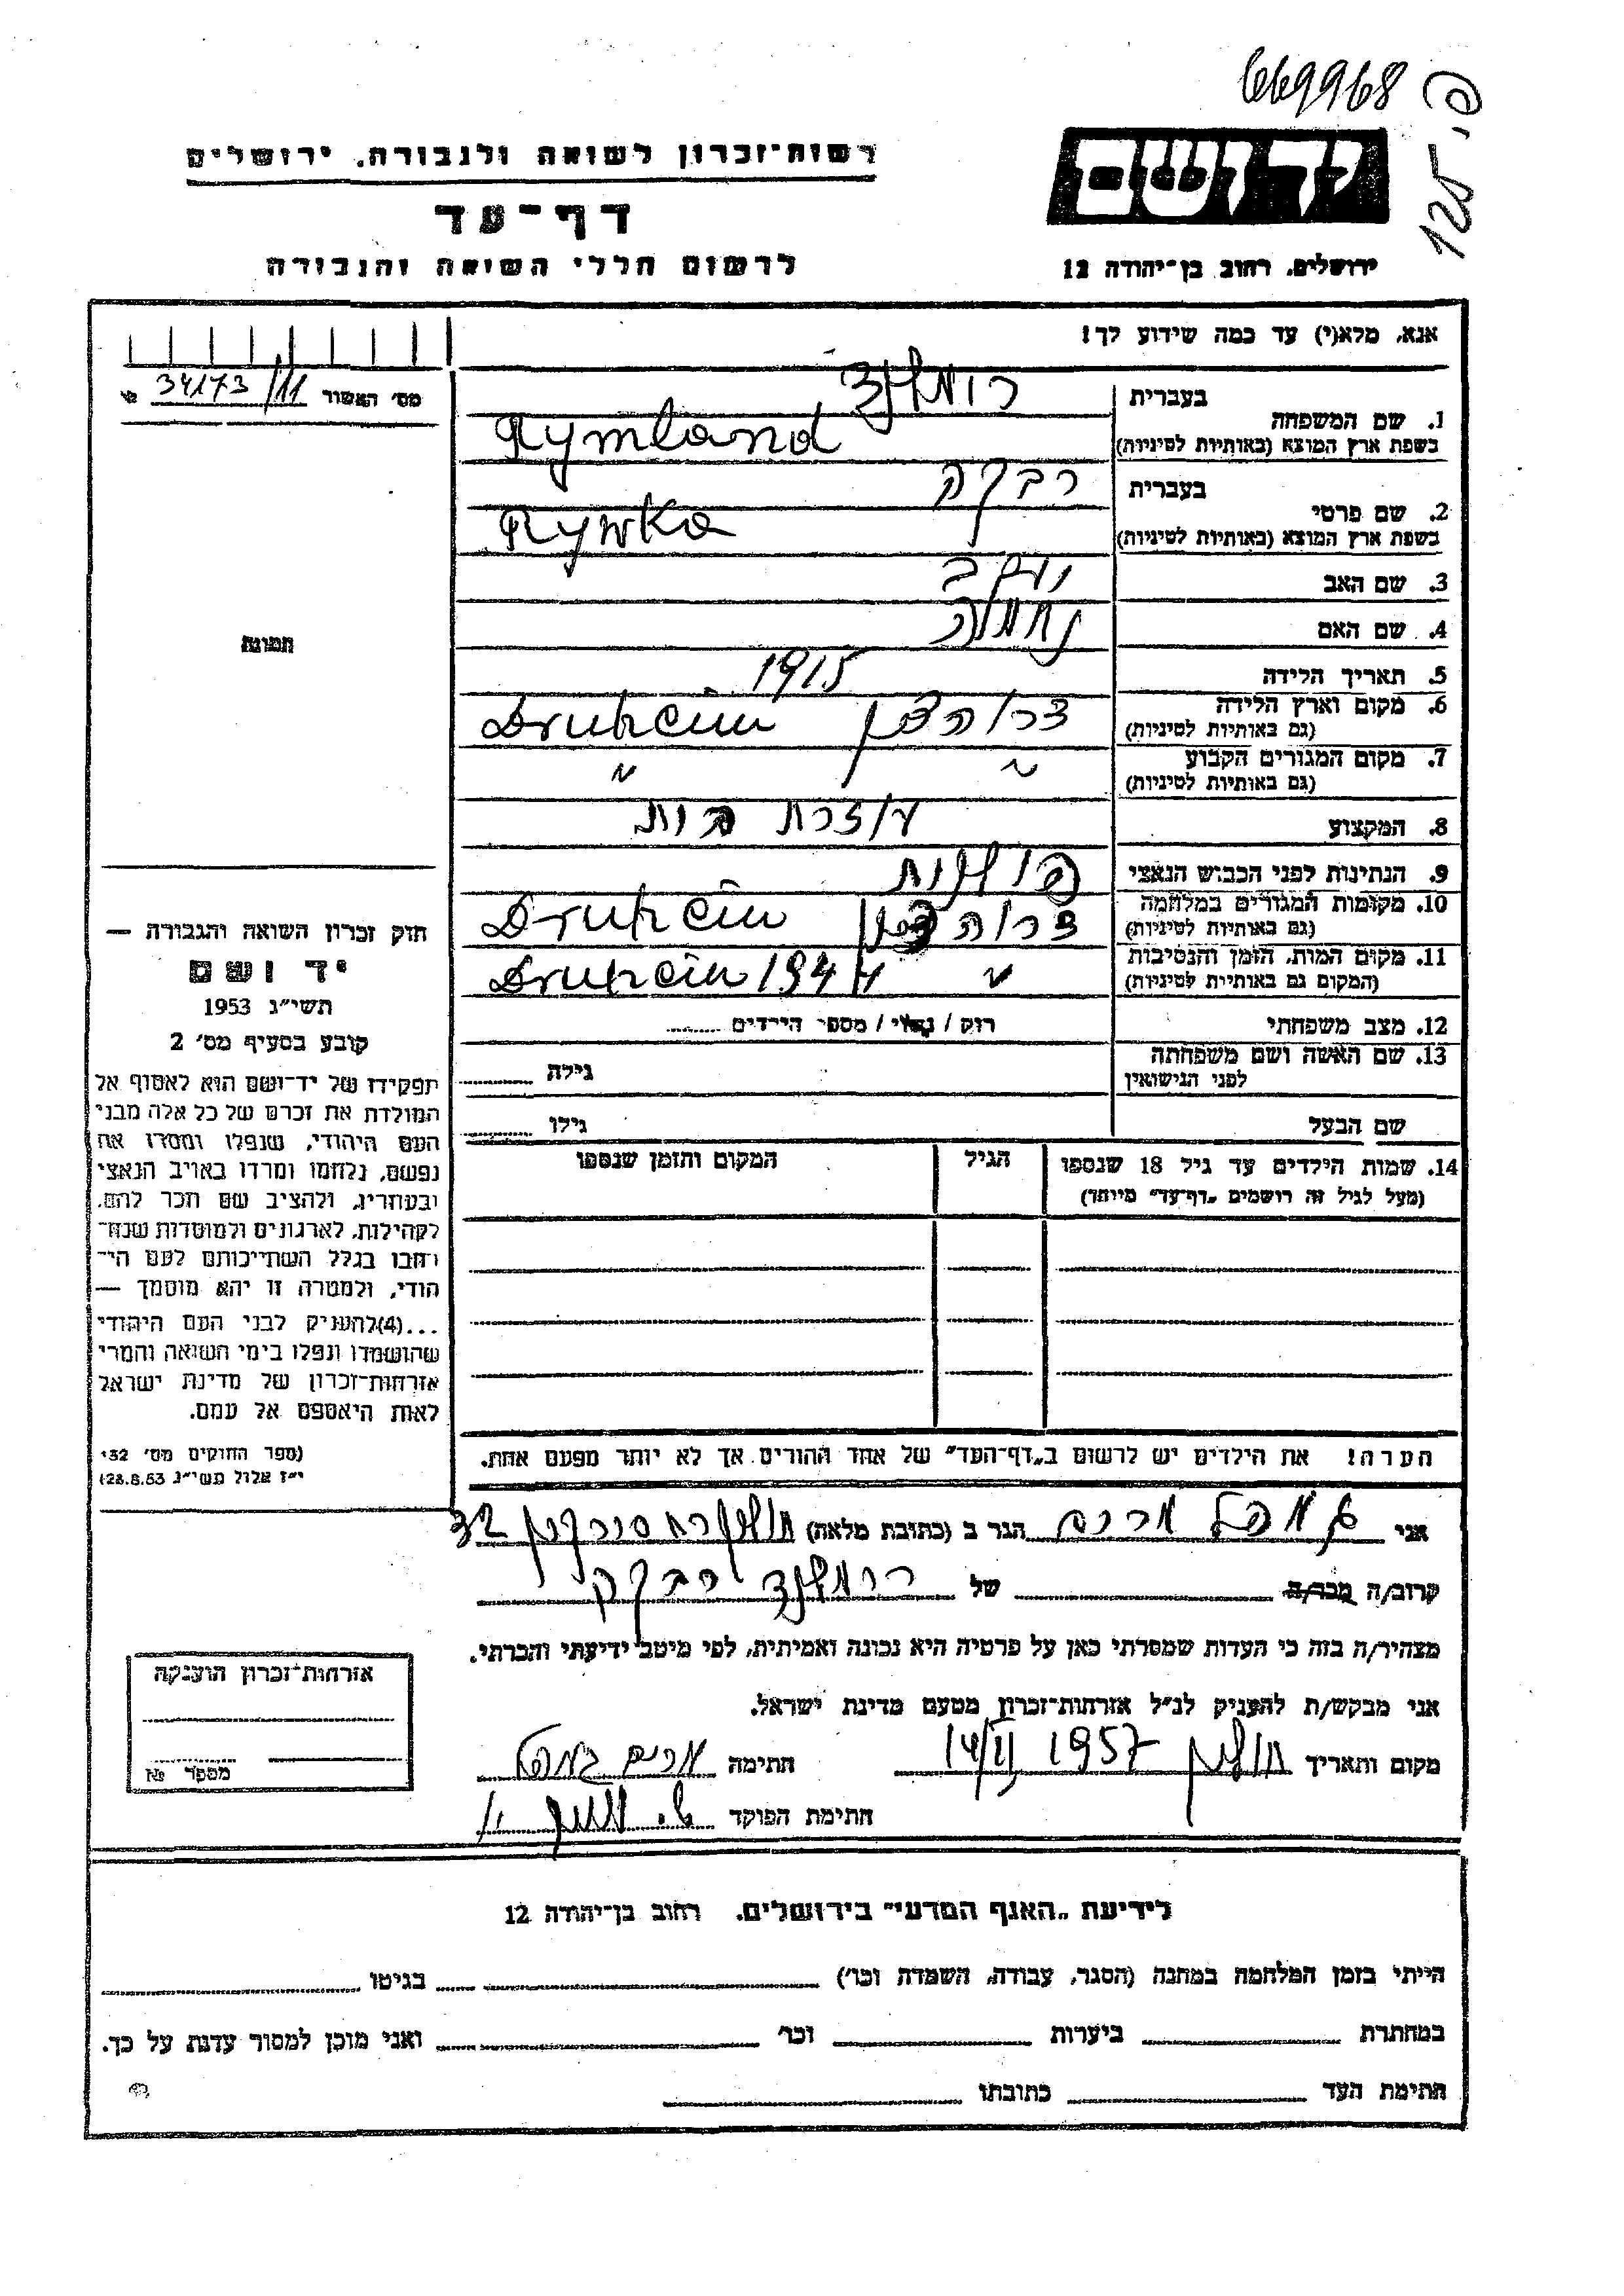 669968
125.פ
רשות-זכרון לשואה ולגבורה. ירושלים
דף-עד
לרשום חללי השואה והגבורה
יד ושם
ירושלים. רחוב בן-יהודה 12
אנא, מלא(י) עד כמה שידוע לך!
מס' האשור 34173/11
1. שם המשפחה
בעברית
רימלנד
בשפת ארץ המוצא (באותיות לטיניות)
Rymland
2. שם פרטי
בעברית
רבקה
בשפת ארץ המוצא (באותיות לטיניות)
Rywka
3. שם האב
יעקב
4. שם האם
נחמה
5. תאריך הלידה
1915
6. מקום וארץ הלידה
(גם באותיות לטיניות)
Druhcin
7. מקום המגורים הקבוע
(גם באותיות לטיניות)
" "
8. המקצוע
עוזרת בית
9. הנתינות לפני הכבוש הנאצי
פולנית
10. מקומות המגורים במלחמה
(גם באותיות לטיניות)
Druhcin
11. מקום המות, הזמן והנסיבות
(המקום גם באותיות לטיניות)
" Druhcin 194
12. מצב משפחתי
רוק / נשוי / מספר הילדים
13. שם האשה ושם משפחתה
לפני הנישואין
גילה
שם הבעל
גילו
14. שמות הילדים עד גיל 18 שנספו
(מעל לגיל זה רושמים „דף-עד" מיוחד)
הגיל
המקום והזמן שנספו
הערה! את הילדים יש לרשום ב„דף-העד" של אחד ההורים אך לא יותר מפעם אחת.
תמונה
חוק זכרון השואה והגבורה —
יד ושם
תשי"ג 1953
קובע בסעיף מס' 2
תפקידו של יד-ושם הוא לאסוף אל
המולדת את זכרם של כל אלה מבני
העם היהודי, שנפלו ומסרו את
נפשם, נלחמו ומרדו באויב הנאצי
ובעוזריו, ולהציב שם וזכר להם,
לקהילות, לארגונים ולמוסדות שנח-
רבו בגלל השתייכותם לעם הי-
הודי, ולמטרה זו יהא מוסמך —
...(4)להעניק לבני העם היהודי
שהושמדו ונפלו בימי השואה והמרי
אזרחות-זכרון של מדינת ישראל
לאות היאספם אל עמם.
(ספר החוקים מס' 132
י"ז אלול תשי"ג 28.8.53)
אני מרים הגר ב (כתובת מלאה) 32
קרוב/ה מכר/ה של רימלנד רבקה
מצהיר/ה בזה כי העדות שמסרתי כאן על פרטיה היא נכונה ואמיתית, לפי מיטב ידיעתי והכרתי.
אני מבקש/ת להעניק לנ"ל אזרחות-זכרון מטעם מדינת ישראל.
מקום ותאריך חולון 1957 חתימה מרים
חתימת הפוקד
אזרחות-זכרון הוענקה
מספר №
לידיעת „האגף המדעי" בירושלים. רחוב בן-יהודה 12
הייתי בזמן המלחמה במחנה (הסגר, עבודה, השמדה וכו') בגיטו
במחתרת ביערות וכו' ואני מוכן למסור עדות על כך.
חתימת העד כתובתו